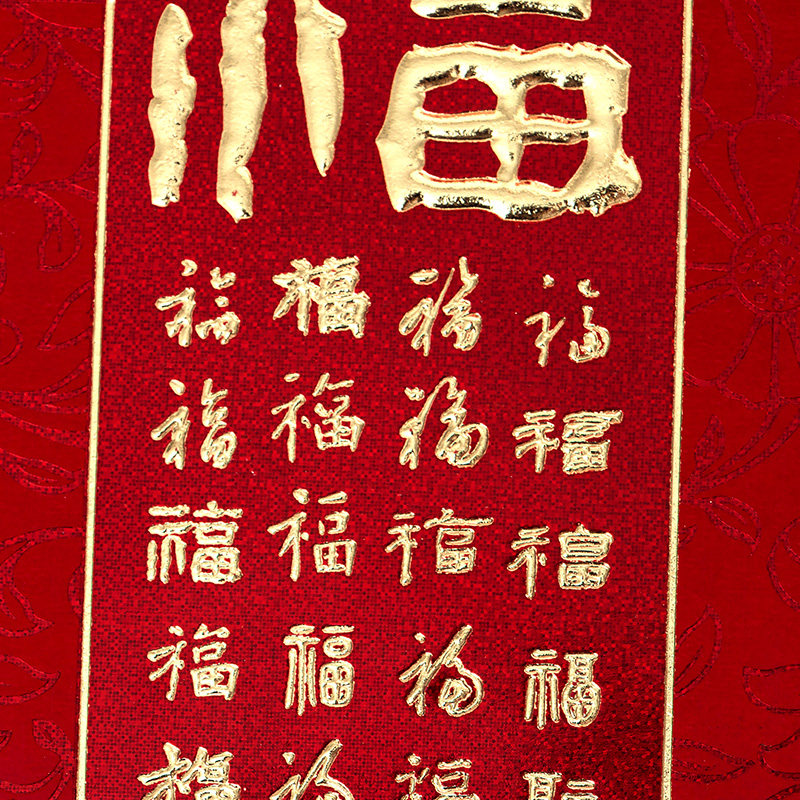 福
福福福福
福福福福
福福福福
福福福福
福福福福